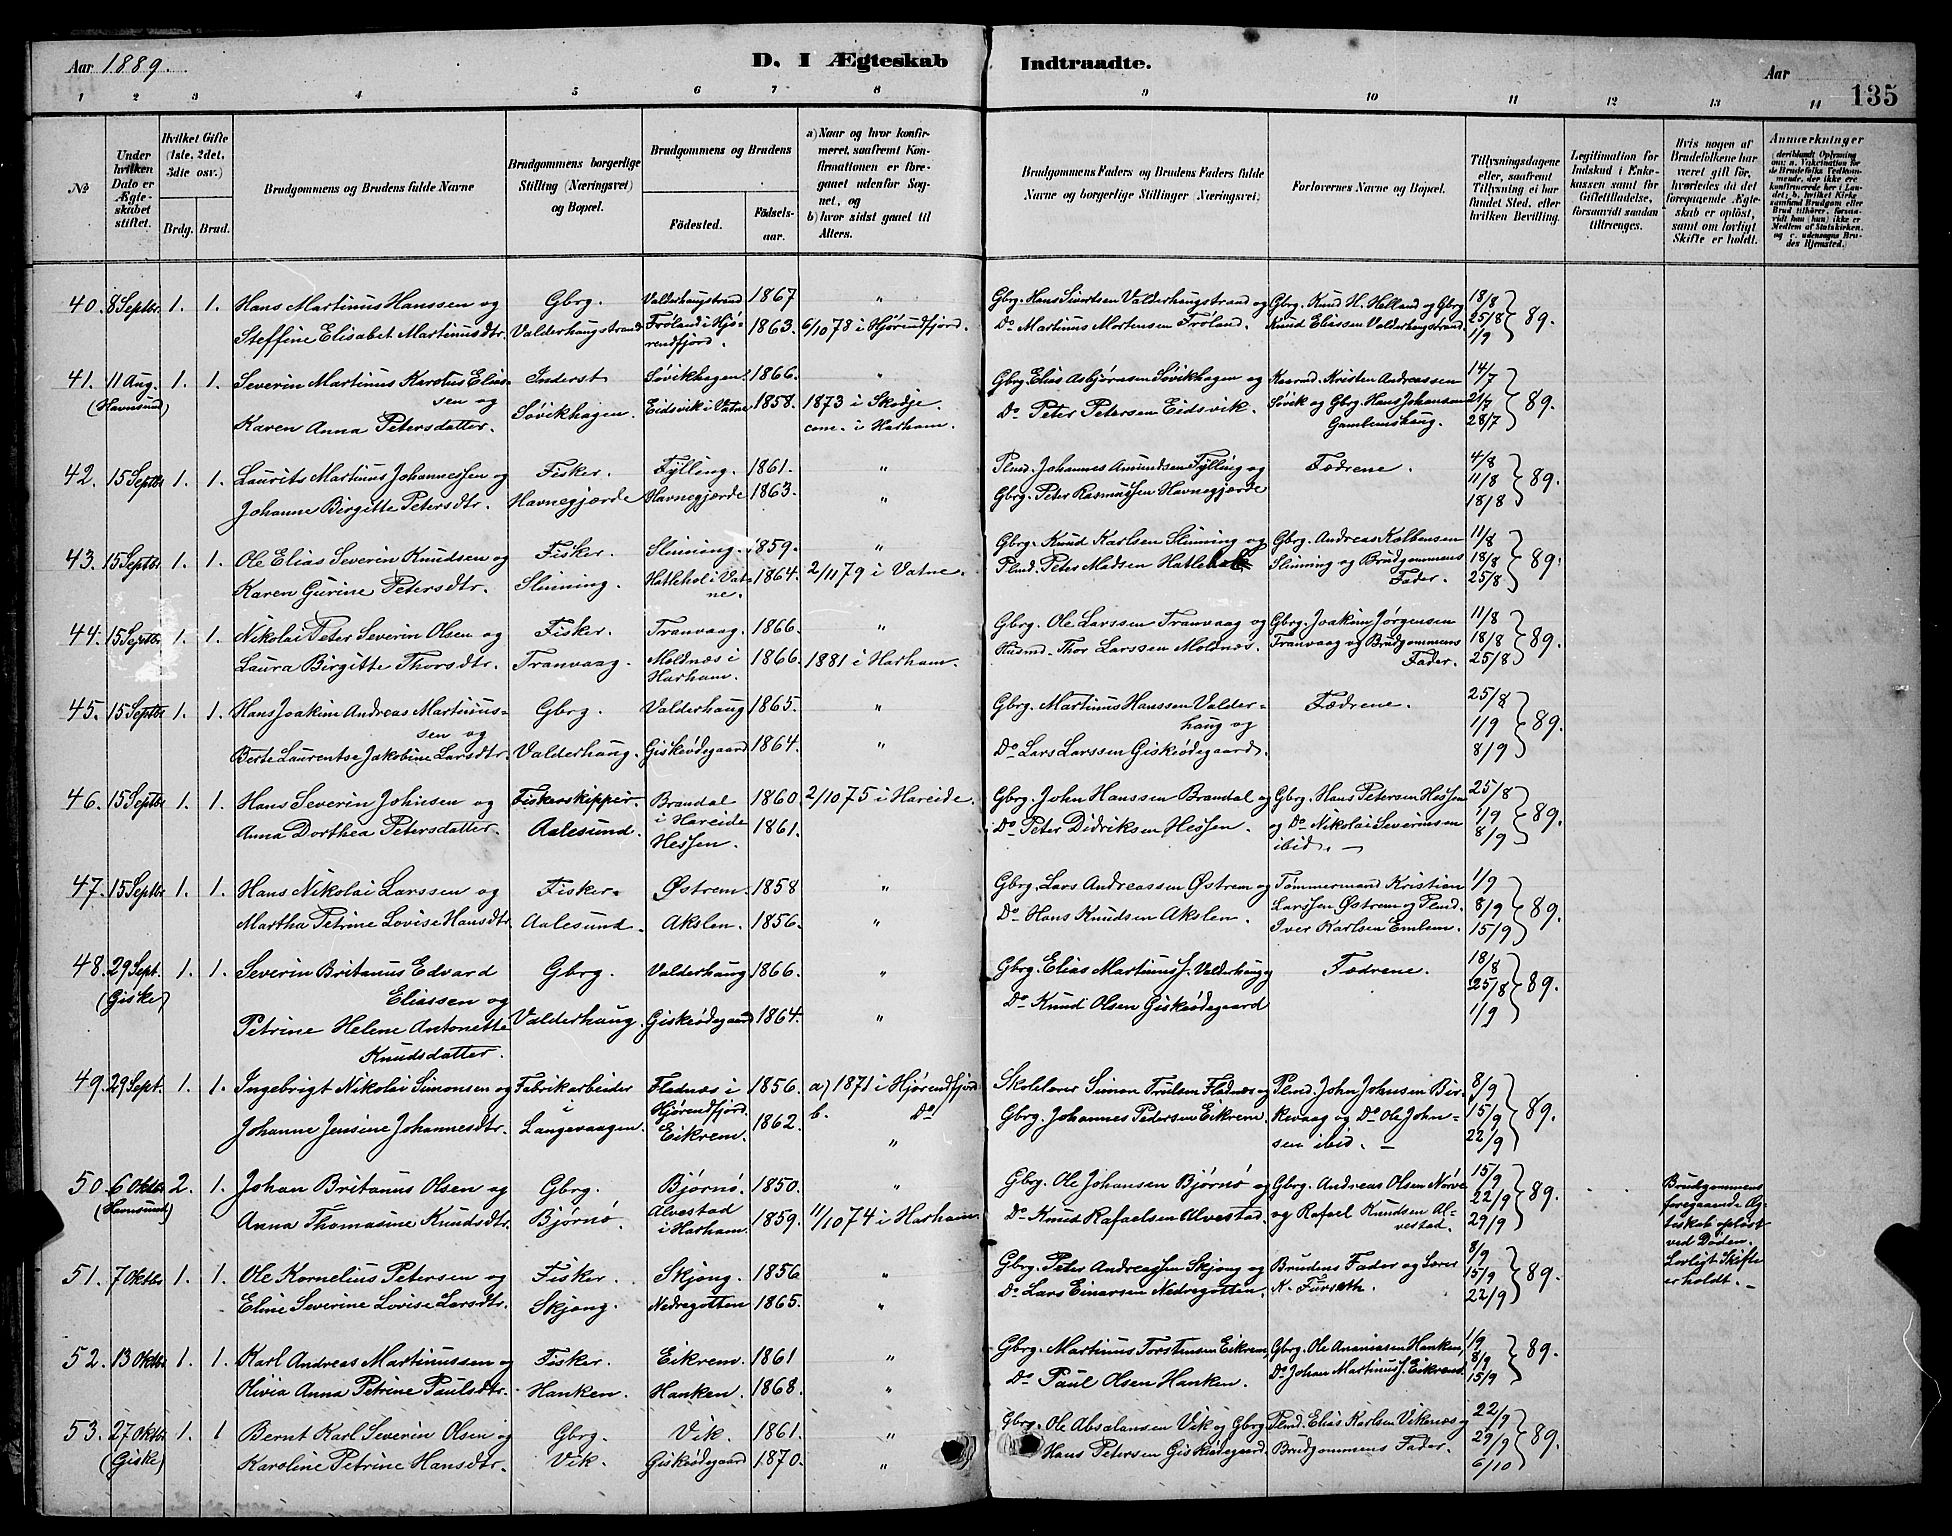 Aar 1889.
D. I Ægteskab Indtraadte.
Aar
135
1 2 3 4 5 6 7 8 9 10 11 12 13 14
No
Under hvilken Dato er Ægteskabet stiftet.
Hvilket Gifte (1ste, 2det, 3die osv.)
Brdg. Brud.
Brudgommens og Brudens fulde Navne
Brudgommens borgerlige Stilling (Næringsvei) og Bopæl.
Brudgommens og Brudens
Fødested. Fødselsaar.
a) Naar og hvor konfirmeret, saafremt Konfirmationen er foregaaet udenfor Sognet, og
b) hvor sidst gaaet til Alters.
Brudgommens Faders og Brudens Faders fulde Navne og borgerlige Stillinger (Næringsvei).
Forlovernes Navne og Bopæl.
Tillysningsdagene eller, saafremt Tillysning ei har fundet Sted, efter hvilken Bevilling.
Legitimation for Indskud i Enkekassen samt for Giftetilladelse, forsaavidt saadan tiltrænges.
Hvis nogen af Brudefolkene har været gift før, hvorledes da det foregaaende Ægteskab er opløst, samt om lovligt Skifte er holdt.
Anmærkninger
(deriblandt Oplysning om: a. Vakcination for de Brudefolks Vedkommende, der ikke ere konfirmerede her i Landet; b. hvilket Kirkesamfund Brudgom eller Brud tilhører, forsaavidt han (hun) ikke er Medlem af Statskirken, og c. udensogns Brudes Hjemsted.
40. 8 Septbr. 1. 1. Hans Martinus Hanssen og Gbrg. Valderhaugstrand 1867 " Gbrg. Hans Sivertsen Valderhaugstrand og Gbrg. Knud H. Helland og Gbrg. 18/8
Steffine Elisabet Martinusdtr. Valderhaugstrand Frøland i Hjørendfjord. 1863. 6/10 78 i Hjørendfjord. Do Martinus Mortensen Frøland. Knud Eliassen Valderhaugstrand. 25/8 1/9 89.
41. 11 Aug. (Havnsund) 1. 1. Severin Martinus Karolus Eliassen og Inderst Søvikhagen. 1866. " Gbrg. Elias Asbjørnsen Søvikhagen og Kaarmd. Kristen Andreassen 14/7
Karen Anna Petersdatter. Søvikhagen. Eidsvik i Vatne 1858. 1873 i Skodje. com. i Harham. Do Peter Petersen Eidsvik. Søvik og Gbrg. Hans Johansen Gamlemshaug. 21/7 28/7 89.
42. 15 Septbr 1. 1. Laurits Martinus Johannessen og Fisker. Fylling. 1861. " Plmd. Johannes Amundsen Fylling og Fædrene. 4/8
Johanne Birgitte Petersdtr. Havnegjærde Havnegjærde 1863. " Gbrg. Peter Rasmussen Havnegjærde 11/8 18/8 89.
43. 15 Septbr 1. 1. Ole Elias Severin Knudsen og Fisker. Slinning. 1859. " Gbrg. Knud Karlsen Slinning og Gbrg. Andreas Kolbensen 11/8
Karen Gurine Petersdtr. Slinning. Hatlehol i Vatne. 1864. 2/11 79 i Vatne. Plmd. Peter Madsen Hatlehol Slinning og Brudgommens Fader. 18/8 25/8 89.
44. 15 Septbr 1. 1. Nikolai Peter Severin Olsen og Fisker. Tranvaag. 1866. " Gbrg. Ole Larssen Tranvaag og Gbrg. Joakim Jørgensen 11/8
Laura Birgitte Thorsdtr. Tranvaag. Moldnæs i Harham. 1866. 1881 i Harham. Husmd. Thor Larssen Moldnæs. Tranvaag og Brudgommens Fader. 18/8 25/8 89.
45. 15 Septbr 1. 1. Hans Joakim Andreas Martinussen og Gbrg. Valderhaug 1865. " Gbrg. Martinus Hanssen Valderhaug og Fædrene. 25/8
Berte Laurentse Jakobine Larsdtr. Valderhaug. Giskeødegaard 1864. " Do Lars Larssen Giskeødegaard. 1/9 8/9 89.
46. 15 Septbr 1. 1. Hans Severin Johnsen og Fiskerskipper. Brandal i Hareide 1860. 2/10 75 i Hareide. Gbrg. John Hanssen Brandal og Gbrg. Hans Petersen Hessen 25/8
Anna Dorthea Petersdatter. Aalesund. Hessen. 1861. Do Peter Didriksen Hessen. og Do Nikolai Severinsen ibid. 1/9 8/9 89.
47. 15 Septbr 1. 1. Hans Nikolai Larssen og Fisker. Østrem. 1858 " Gbrg. Lars Andreassen Østrem og Tømmermand Kristian 1/9
Martha Petrine Lovise Hansdtr. Aalesund. Akslen. 1856. " Do Hans Knudsen Akslen. Larssen Østrem og Plmd. Iver Karlsen Emlem. 8/9 15/9 89.
48. 29 Sept. (Giske) 1. 1. Severin Britanus Edvard Eliassen og Gbrg. Valderhaug 1866. " Gbrg. Elias Martinus S. Valderhaug og Fædrene. 18/8
Petrine Helene Antonette Knudsdatter. Valderhaug. Giskeødegaard 1864. " Do Knud Olsen Giskeødegaard 25/8 1/9 89.
49. 29 Sept. 1. 1. Ingebrigt Nikolai Simonsen og Fabrikarbeider i Fladnæs i Hjørendfjord. 1856. a) 1871 i Hjørendfjord b. Do Skolelærer Simon Trulsen Fladnæs og Plmd. John Johnsen Bir- 8/9
Johanne Jensine Johannesdtr. Langevaagen. Eikrem. 1862. " Gbrg. Johannes Pedersen Eikrem. kevaag og Do Ole Johnsen ibid. 15/9 22/9 89.
50. 6 Oktbr (Havnsund) 2. 1. Johan Britanus Olsen og Gbrg. Bjørnø. 1850. " Gbrg. Ole Johansen Bjørnø og Gbrg. Andreas Olsen Nørve 15/9
Anna Thomasine Knudsdtr. Bjørnø. Alvestad i Harham. 1859. 11/10 74 i Harham. Do Knud Rafaelsen Alvestad. og Rafael Knudsen Alvestad. 22/9 29/9 89.
Brudgommens foregaaende Ægteskab opløst ved Døden. Lovligt Skifte er holdt.
51. 7 Oktbr 1. 1. Ole Kornelius Petersen og Fisker. Skjong. 1856 " Gbrg. Peter Andreassen Skjong og Brudens Fader og Lærer 8/9
Eline Severine Lovise Larsdtr. Skjong. Nedregotten 1865. " Do Lars Einarsen Nedregotten. K. Furseth. 15/9 22/9 89.
52. 13 Oktbr 1. 1. Karl Andreas Martinussen og Fisker. Eikrem. 1861 " Gbrg. Martinus Torstensen Eikrem, Gbrg. Ole Ananiassen Hanken, 1/9
Olivia Anna Petrine Paulsdtr. Hanken. Hanken. 1868. " Do Paul Olsen Hanken. Do Johan Martinus J. Eikrem. 8/9 15/9 89.
53. 27 Oktbr (Giske) 1. 1 Bernt Karl Severin Olsen og Gbrg. Vik. 1861. " Gbrg. Ole Absalonsen Vik og Gbrg. Plmd. Elias Karlsen Vikenæs og 22/9
Karoline Petrine Hansdtr. Vik. Giskeødegaard 1870. " Hans Petersen Giskeødegaard. Brudgommens Fader. 29/9 6/10 89.